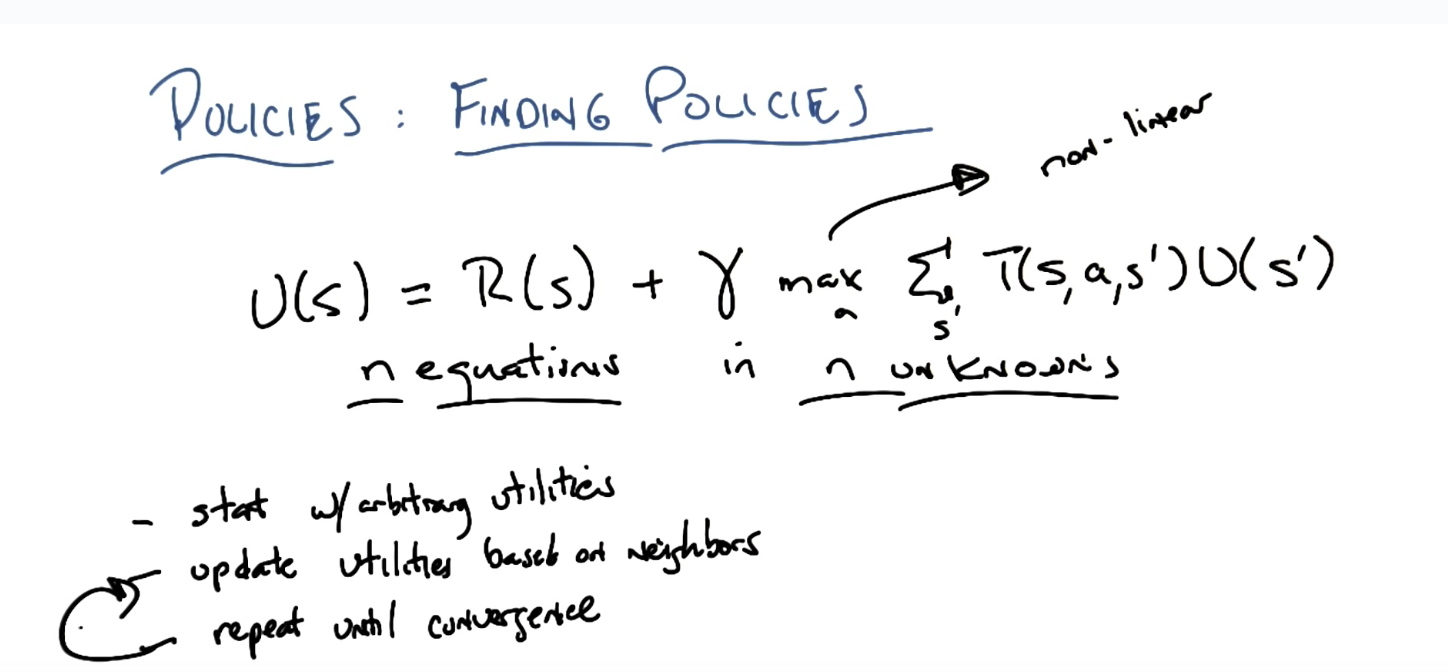 POLICIES : FINDING POLICIES
non-linear
U(s) = R(s) + γ max_a Σ_s' T(s,a,s') U(s')
n equations in n unknowns
- start w/ arbitrary utilities
- update utilities based on neighbors
- repeat until convergence